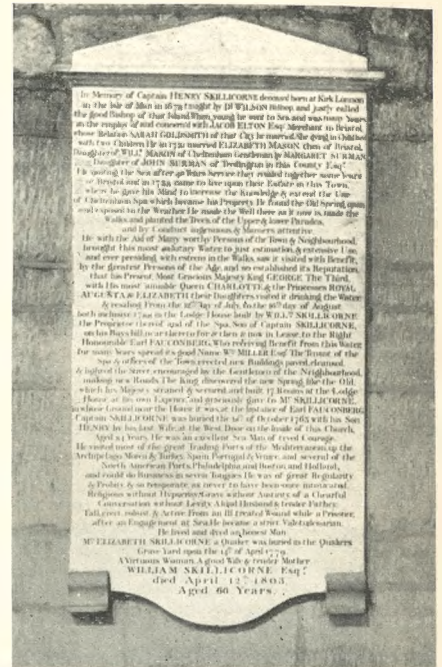 In Memory of Captain HENRY SKILLICORNE deceased born at Kirk Lonnon
in the Isle of Man in 1678 taught by Dr WILSON Bishop and justly called
the good Bishop of that Island When young he went to Sea and was many Years
in the employ of and concern'd with JACOB ELTON Esqr Merchant in Bristol,
whose Relation SARAH GOLDSMITH of that City he married. She dying in Childbed
with two Children He in 1731 married ELIZABETH MASON then of Bristol,
Daughter of WILLm MASON of Cheltenham Gentleman by MARGARET SURMAN
Daughter of JOHN SURMAN of Tredington in this County Esqr
He quitting the Sea after 40 Years Service they resided together some Years
at Bristol and in 1738 came to live upon their Estate in this Town,
where he gave his Mind to increase the Knowledge & extend the Use
of Cheltenham Spa which became his Property. He found the Old Spring open
and exposed to the Weather He made the Well there as it now is, made the
Walks and planted the Trees of the Upper & lower Parades,
and by Conduct ingenuous & Manners attentive.
He with the Aid of Many worthy Persons of the Town & Neighbourhood,
brought this most salutary Water to just estimation & extensive Use,
and ever presiding with esteem in the Walks, saw it visited with Benefit,
by the greatest Persons of the Age, and so established its Reputation,
that his Present Most Gracious Majesty King GEORGE The Third,
with His most amiable Queen CHARLOTTE & the Princesses ROYAL
AUGUSTA & ELIZABETH their Daughters visited it drinking the Water
& residing From the 12th day of July, to the 16th day of August
both inclusive 1788 in the Lodge House built by WILLm SKILLICORNE
the Proprietor thereof and of the Spa, Son of Captain SKILLICORNE,
on his Bays hill near thereto for & then & now in Lease, to the Right
Honourable Earl FAUCONBERG, Who referring Benefit from this Water
for many Years spread its good Name Wm MILLER Esqr The Renter of the
Spa & others of the Town erected new Buildings paved cleansed
& lighted the Street encouraged by the Gentlemen of the Neighbourhood,
making new Roads The King discovered the new Spring, like the Old
which his Majesty steaned & secured and built 17 Rooms at the Lodge
House at his own Expence and graciously gave to Mr SKILLICORNE,
in whose Ground near the House it was, at the Instance of Earl FAUCONBERG
Captain SKILLICORNE was buried the 18th of October 1763 with his Son
HENRY by his last Wife at the West Door on the Inside of this Church,
Aged 84 Years. He was an excellent Sea Man of tryed Courage.
He visited most of the great Trading Ports of the Mediterranean up the
Archipelago Morea & Turkey, Spain Portugal & Venice, and several of the
North American Ports, Philadelphia and Boston and Holland,
and could do Business in seven Tongues He was of great Regularity
& Probity & so temperate as never to have been once intoxicated.
Religious without Hypocrisy Grave without Austerity of a Chearful
Conversation without Levity A kind Husband & tender Father.
Tall, erect, robust & Active From an Ill treated Wound while a Prisoner,
after an Engagement at Sea He became a strict Valetudinarian.
He lived and dyed an honest Man
Mrs ELIZABETH SKILLICORNE a Quaker was buried in the Quakers
Grave Yard upon the 14th of April 1779
A Virtuous Woman A good Wife & tender Mother
WILLIAM SKILLICORNE Esqr
died April 12th 1803
Aged 66 Years.